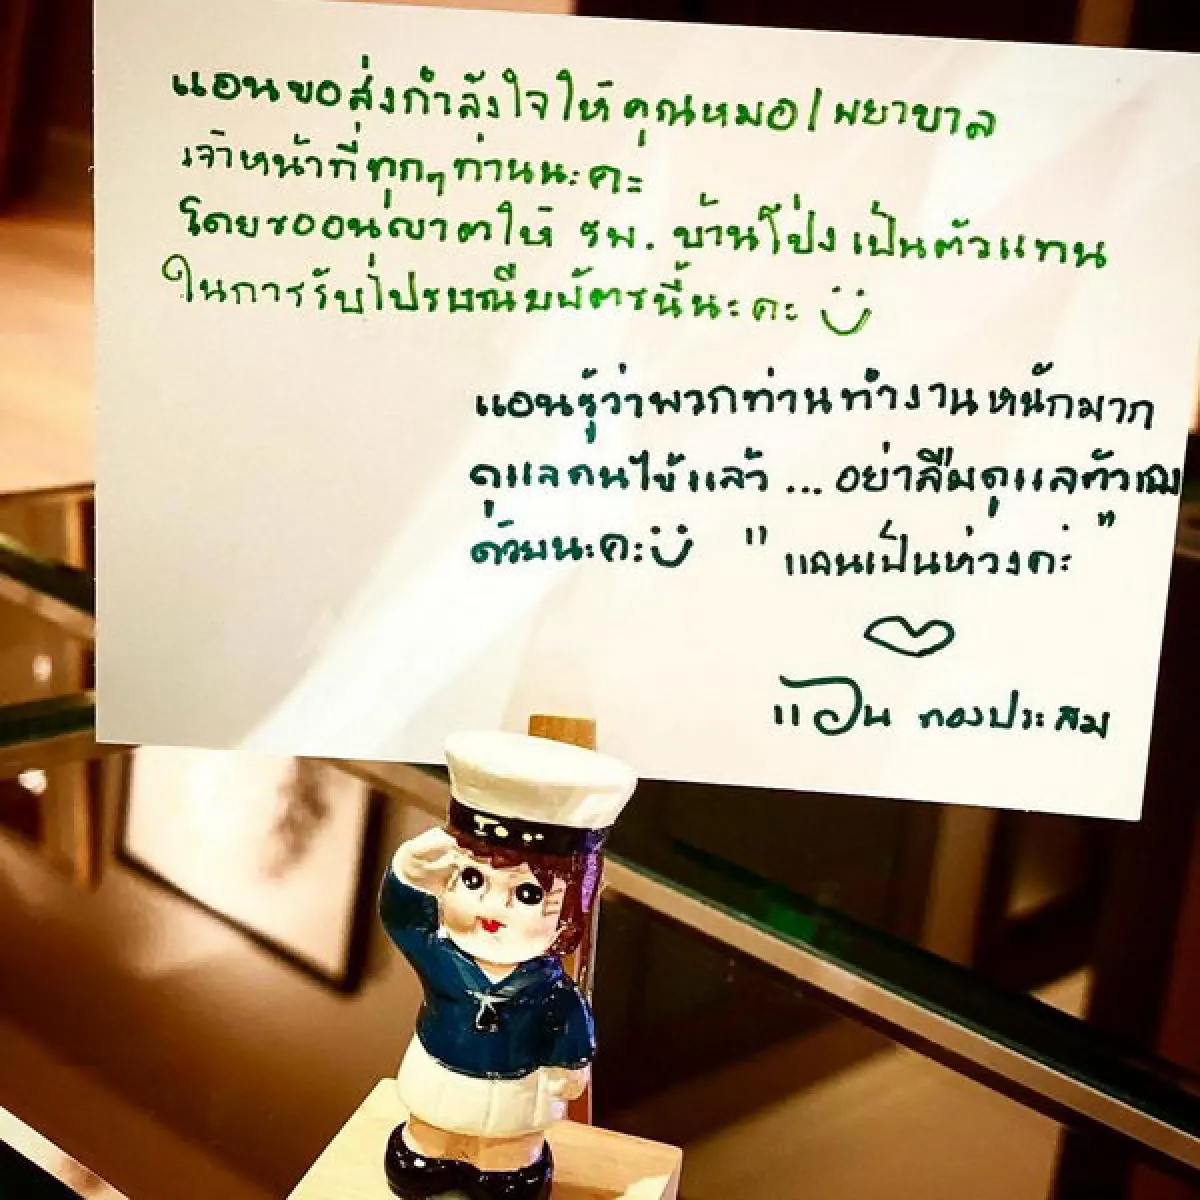 แอนขอส่งกำลังใจให้คุณหมอ/พยาบาล
เจ้าหน้าที่ทุกๆท่านนะคะ
โดยขออนุญาตให้ รพ. บ้านโป่ง เป็นตัวแทน
ในการรับไปรษณียบัตรนี้นะคะ
แอนรู้ว่าพวกท่านทำงานหนักมาก
ดูแลคนไข้แล้ว ... อย่าลืมดูแลตัวเอง
ด้วยนะคะ "แอนเป็นห่วงค่ะ"
แอน ทองประสม